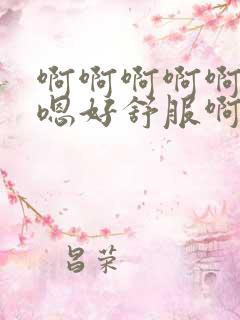 啊啊啊啊啊
嗯好舒服啊
昌荣